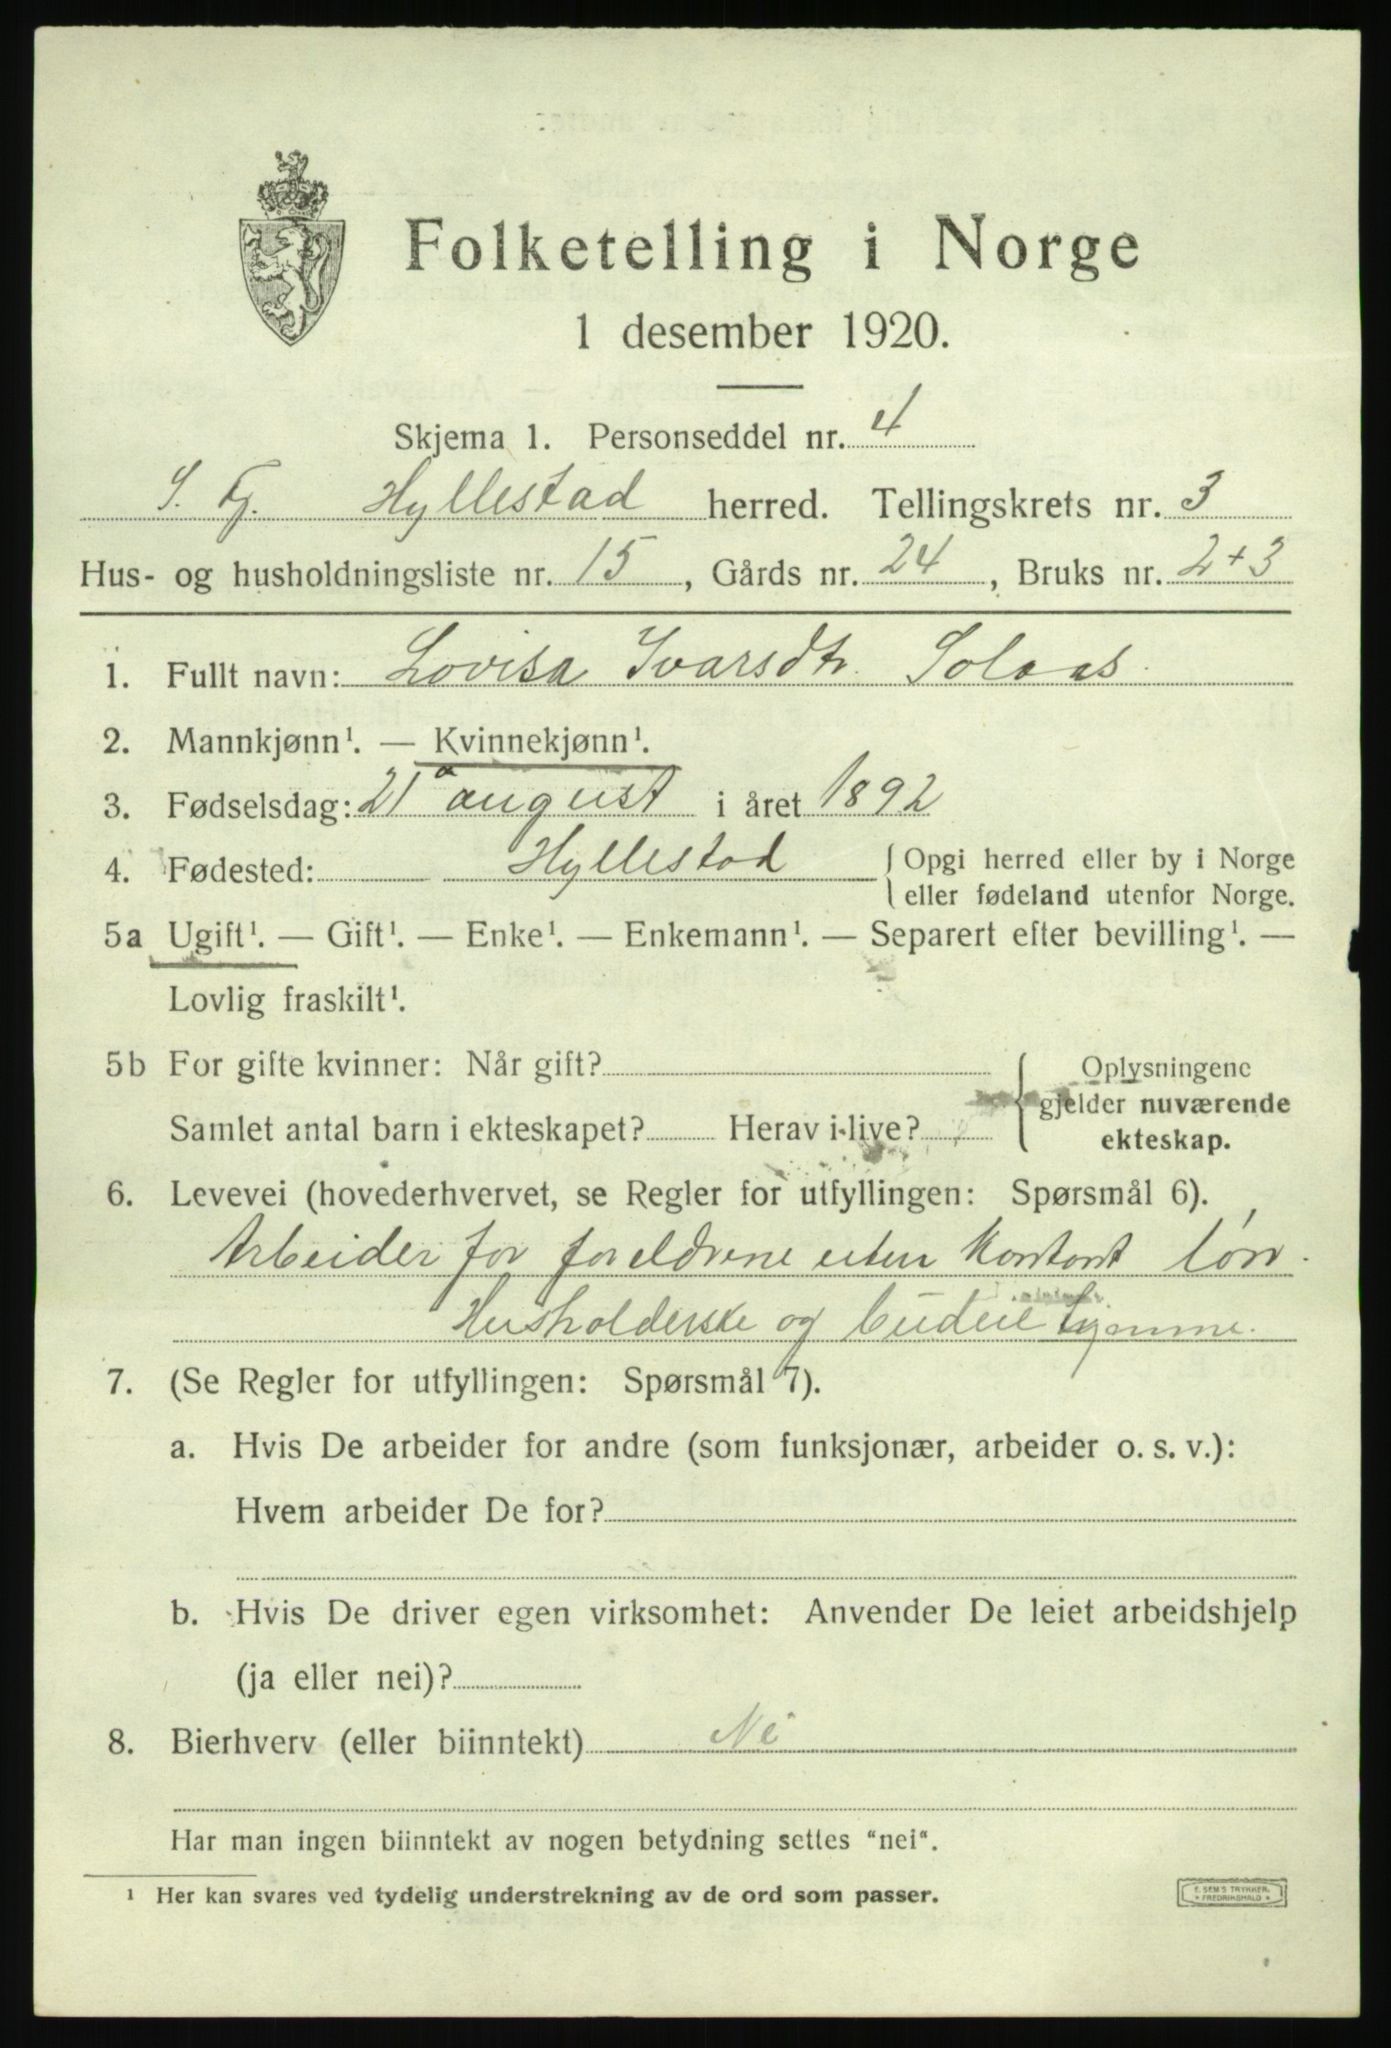 Folketelling i Norge
1 desember 1920.
Skjema 1. Personseddel nr. 4
S. Fj. Hyllestad herred. Tellingskrets nr. 3
Hus- og husholdningsliste nr. 15, Gårds nr. 24, Bruks nr. 2+3
1. Fullt navn: Lovisa Ivarsdtr. Solaas.
2. Mannkjønn¹. — Kvinnekjønn¹.
3. Fødselsdag: 21 august i året 1892
4. Fødested: Hyllestad { Opgi herred eller by i Norge
eller fødeland utenfor Norge.
5a Ugift¹. — Gift¹. — Enke¹. — Enkemann¹. — Separert efter bevilling¹. —
Lovlig fraskilt¹.
5b For gifte kvinner: Når gift? Oplysningene
gjelder nuværende
Samlet antal barn i ekteskapet? Herav i live? ekteskap.
6. Levevei (hovederhvervet, se Regler for utfyllingen: Spørsmål 6).
Arbeider for foreldrene uten kontant lön.
Husholderske og budeie hjemme.
7. (Se Regler for utfyllingen: Spørsmål 7).
a. Hvis De arbeider for andre (som funksjonær, arbeider o. s. v.):
Hvem arbeider De for?
b. Hvis De driver egen virksomhet: Anvender De leiet arbeidshjelp
(ja eller nei)?
8. Bierhverv (eller biinntekt) Nei
Har man ingen biinntekt av nogen betydning settes "nei".
¹ Her kan svares ved tydelig understrekning av de ord som passer.
E. SEM'S TRYKKERI
FREDRIKSHALD